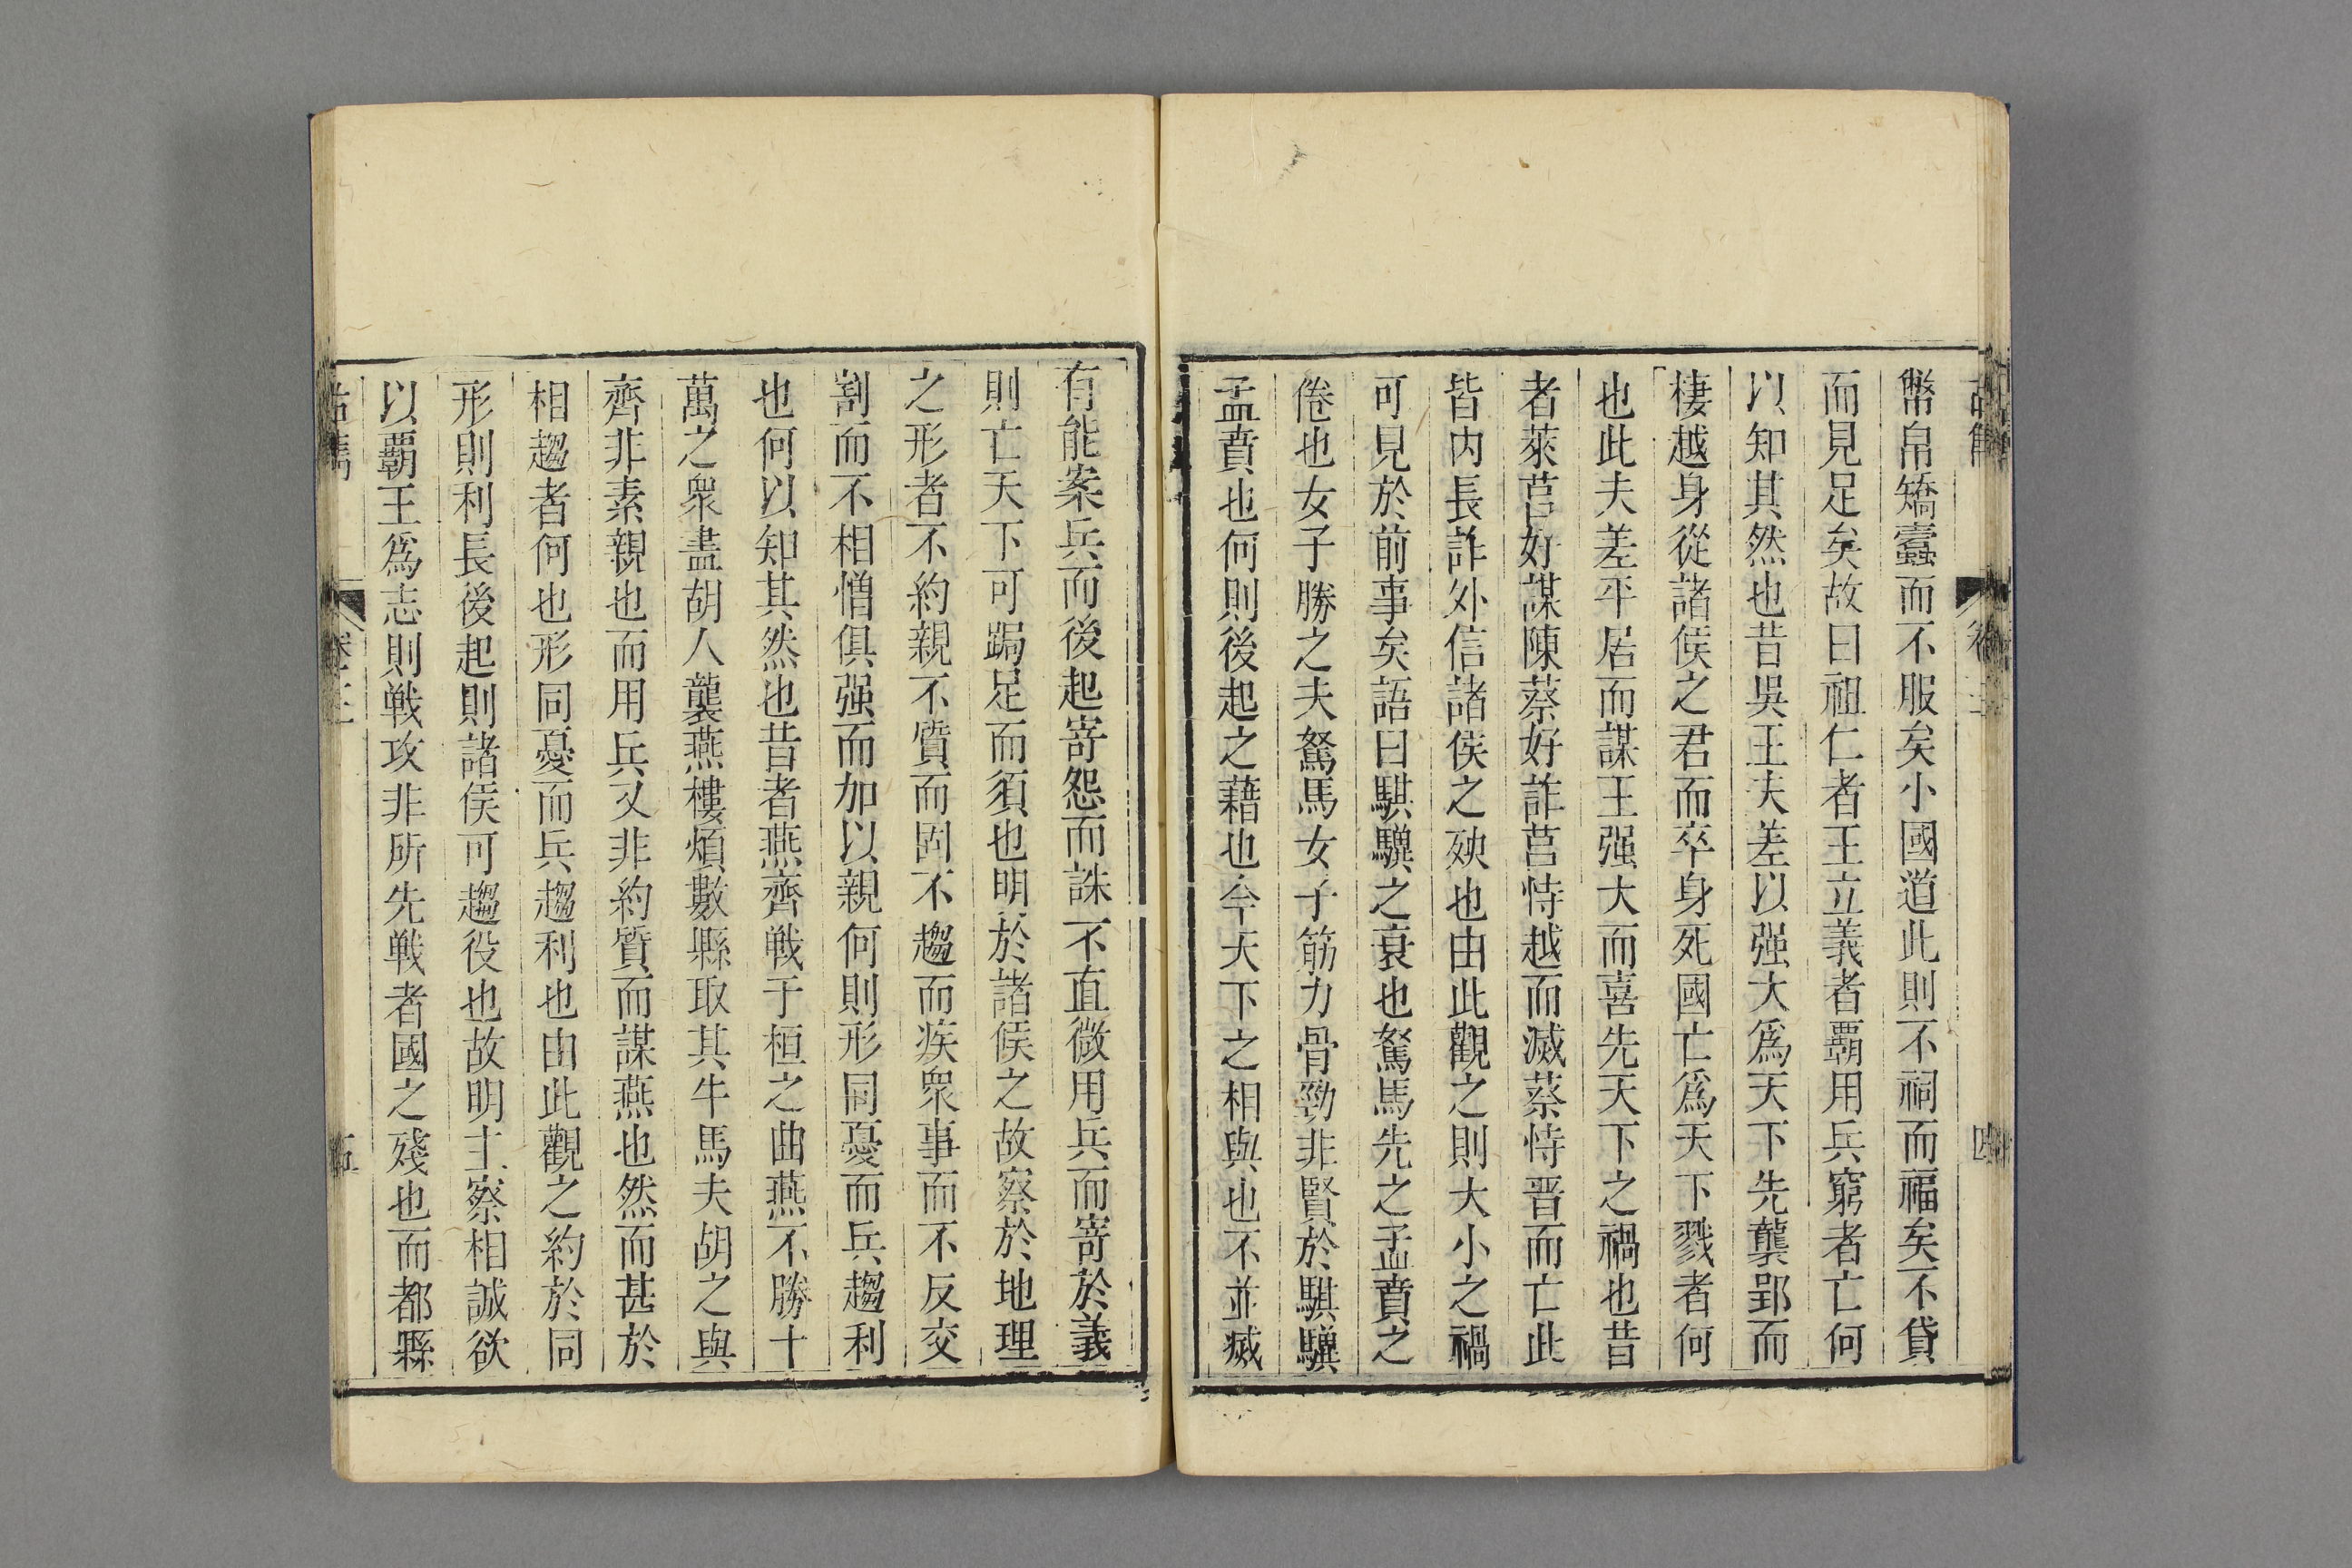 幣帛矯蠹而不服矣小國道此則不祠而福矣不貸
而見足矣故曰祖仁者王立義者覇用兵窮者亡何
以知其然也昔吳王夫差以强大爲天下先龔郢而
棲越身從諸侯之君而卒身死國亡爲天下戮者何
也此夫差平居而謀王强大而喜先天下之禍也昔
者萊莒好謀陳蔡好詐莒恃越而滅蔡恃晋而亡此
皆内長詐外信諸侯之殃也由此觀之則大小之禍
可見於前事矣語曰騏驥之衰也駑馬先之孟賁之
倦也女子勝之夫駑馬女子筋力骨勁非賢於騏驥
孟賁也何則後起之藉也今天下之相與也不並滅
有能案兵而後起寄怨而誅不直微用兵而寄於義
則亡天下可跼足而須也明於諸侯之故察於地理
之形者不約親不質而固不趨而疾衆事而不反交
割而不相憎俱强而加以親何則形同憂而兵趨利
也何以知其然也昔者燕齊戦于桓之曲燕不勝十
萬之衆盡胡人襲燕樓煩數縣取其牛馬夫胡之與
齊非素親也而用兵又非約質而謀燕也然而甚於
相趨者何也形同憂而兵趨利也由此觀之約於同
形則利長後起則諸侯可趨役也故明主察相誠欲
以覇王爲志則戦攻非所先戦者國之殘也而都縣
卷三
五